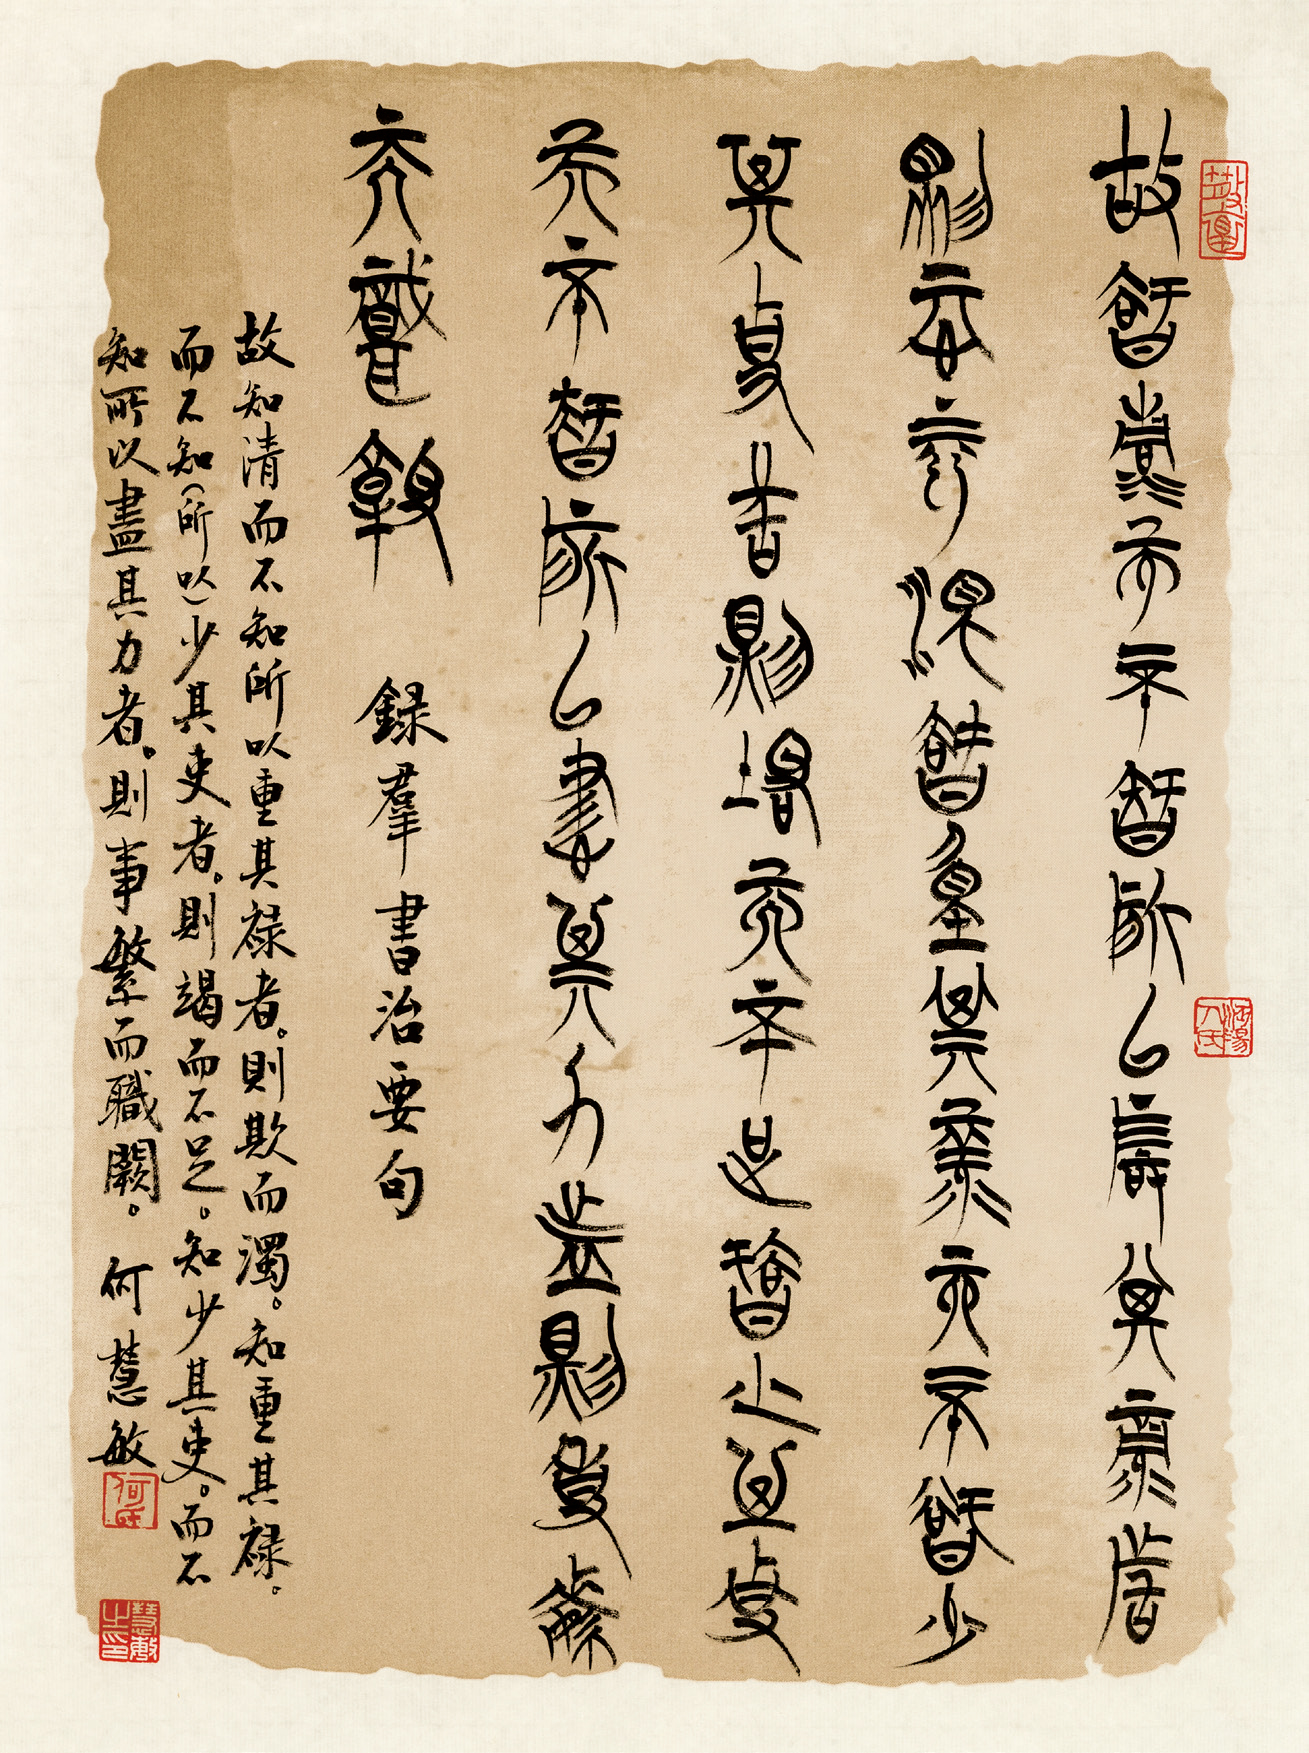 故智清而不智所以重其祿者
則欺而濁智重其祿而不智少
其吏者則竭而不足智少其吏
而不智所以盡其力者則事繁
而職闕 録羣書治要句
故知清而不知所以重其禄者。則欺而濁。知重其禄。
而不知(所以)少其吏者。則竭而不足。知少其吏。而不
知所以盡其力者。則事繁而職闕。何慧敏
何氏
慧敏之印